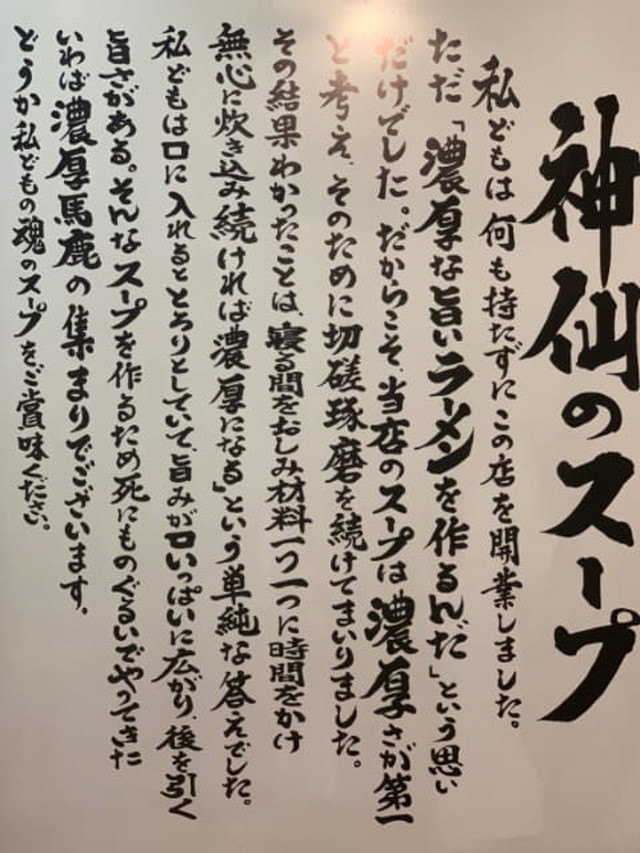 神仙のスープ
私どもは何も持たずにこの店を開業しました。
ただ「濃厚な旨いラーメンを作るんだ」という思い
だけでした。だからこそ、当店のスープは濃厚さが第一
と考え、そのために切磋琢磨を続けてまいりました。
その結果わかったことは、寝る間をおしみ材料一つ一つに時間をかけ
無心に炊き込み続ければ濃厚になる」という単純な答えでした。
私どもは口に入れるととろりとしていて、旨みが口いっぱいに広がり、後を引く
旨さがある。そんなスープを作るため死にものぐるいでやってきた
いわば濃厚馬鹿の集まりでございます。
どうか私どもの魂のスープをご賞味ください。